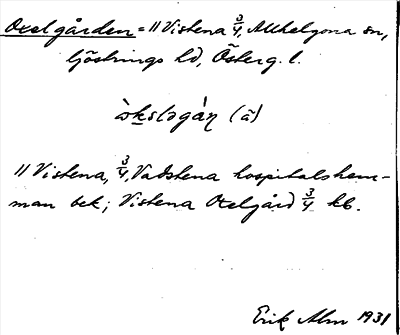 Oxelgården = // Vistena 3/4, Allhelgona sn,
Göstrings hd, Österg. l.
òkslǝgàṇ (ã)
// Vistena, 3/4, Vadstena hospitalshem-
man bek; Vistena Oxelgård 3/4 kb.
Erik Alm 1931